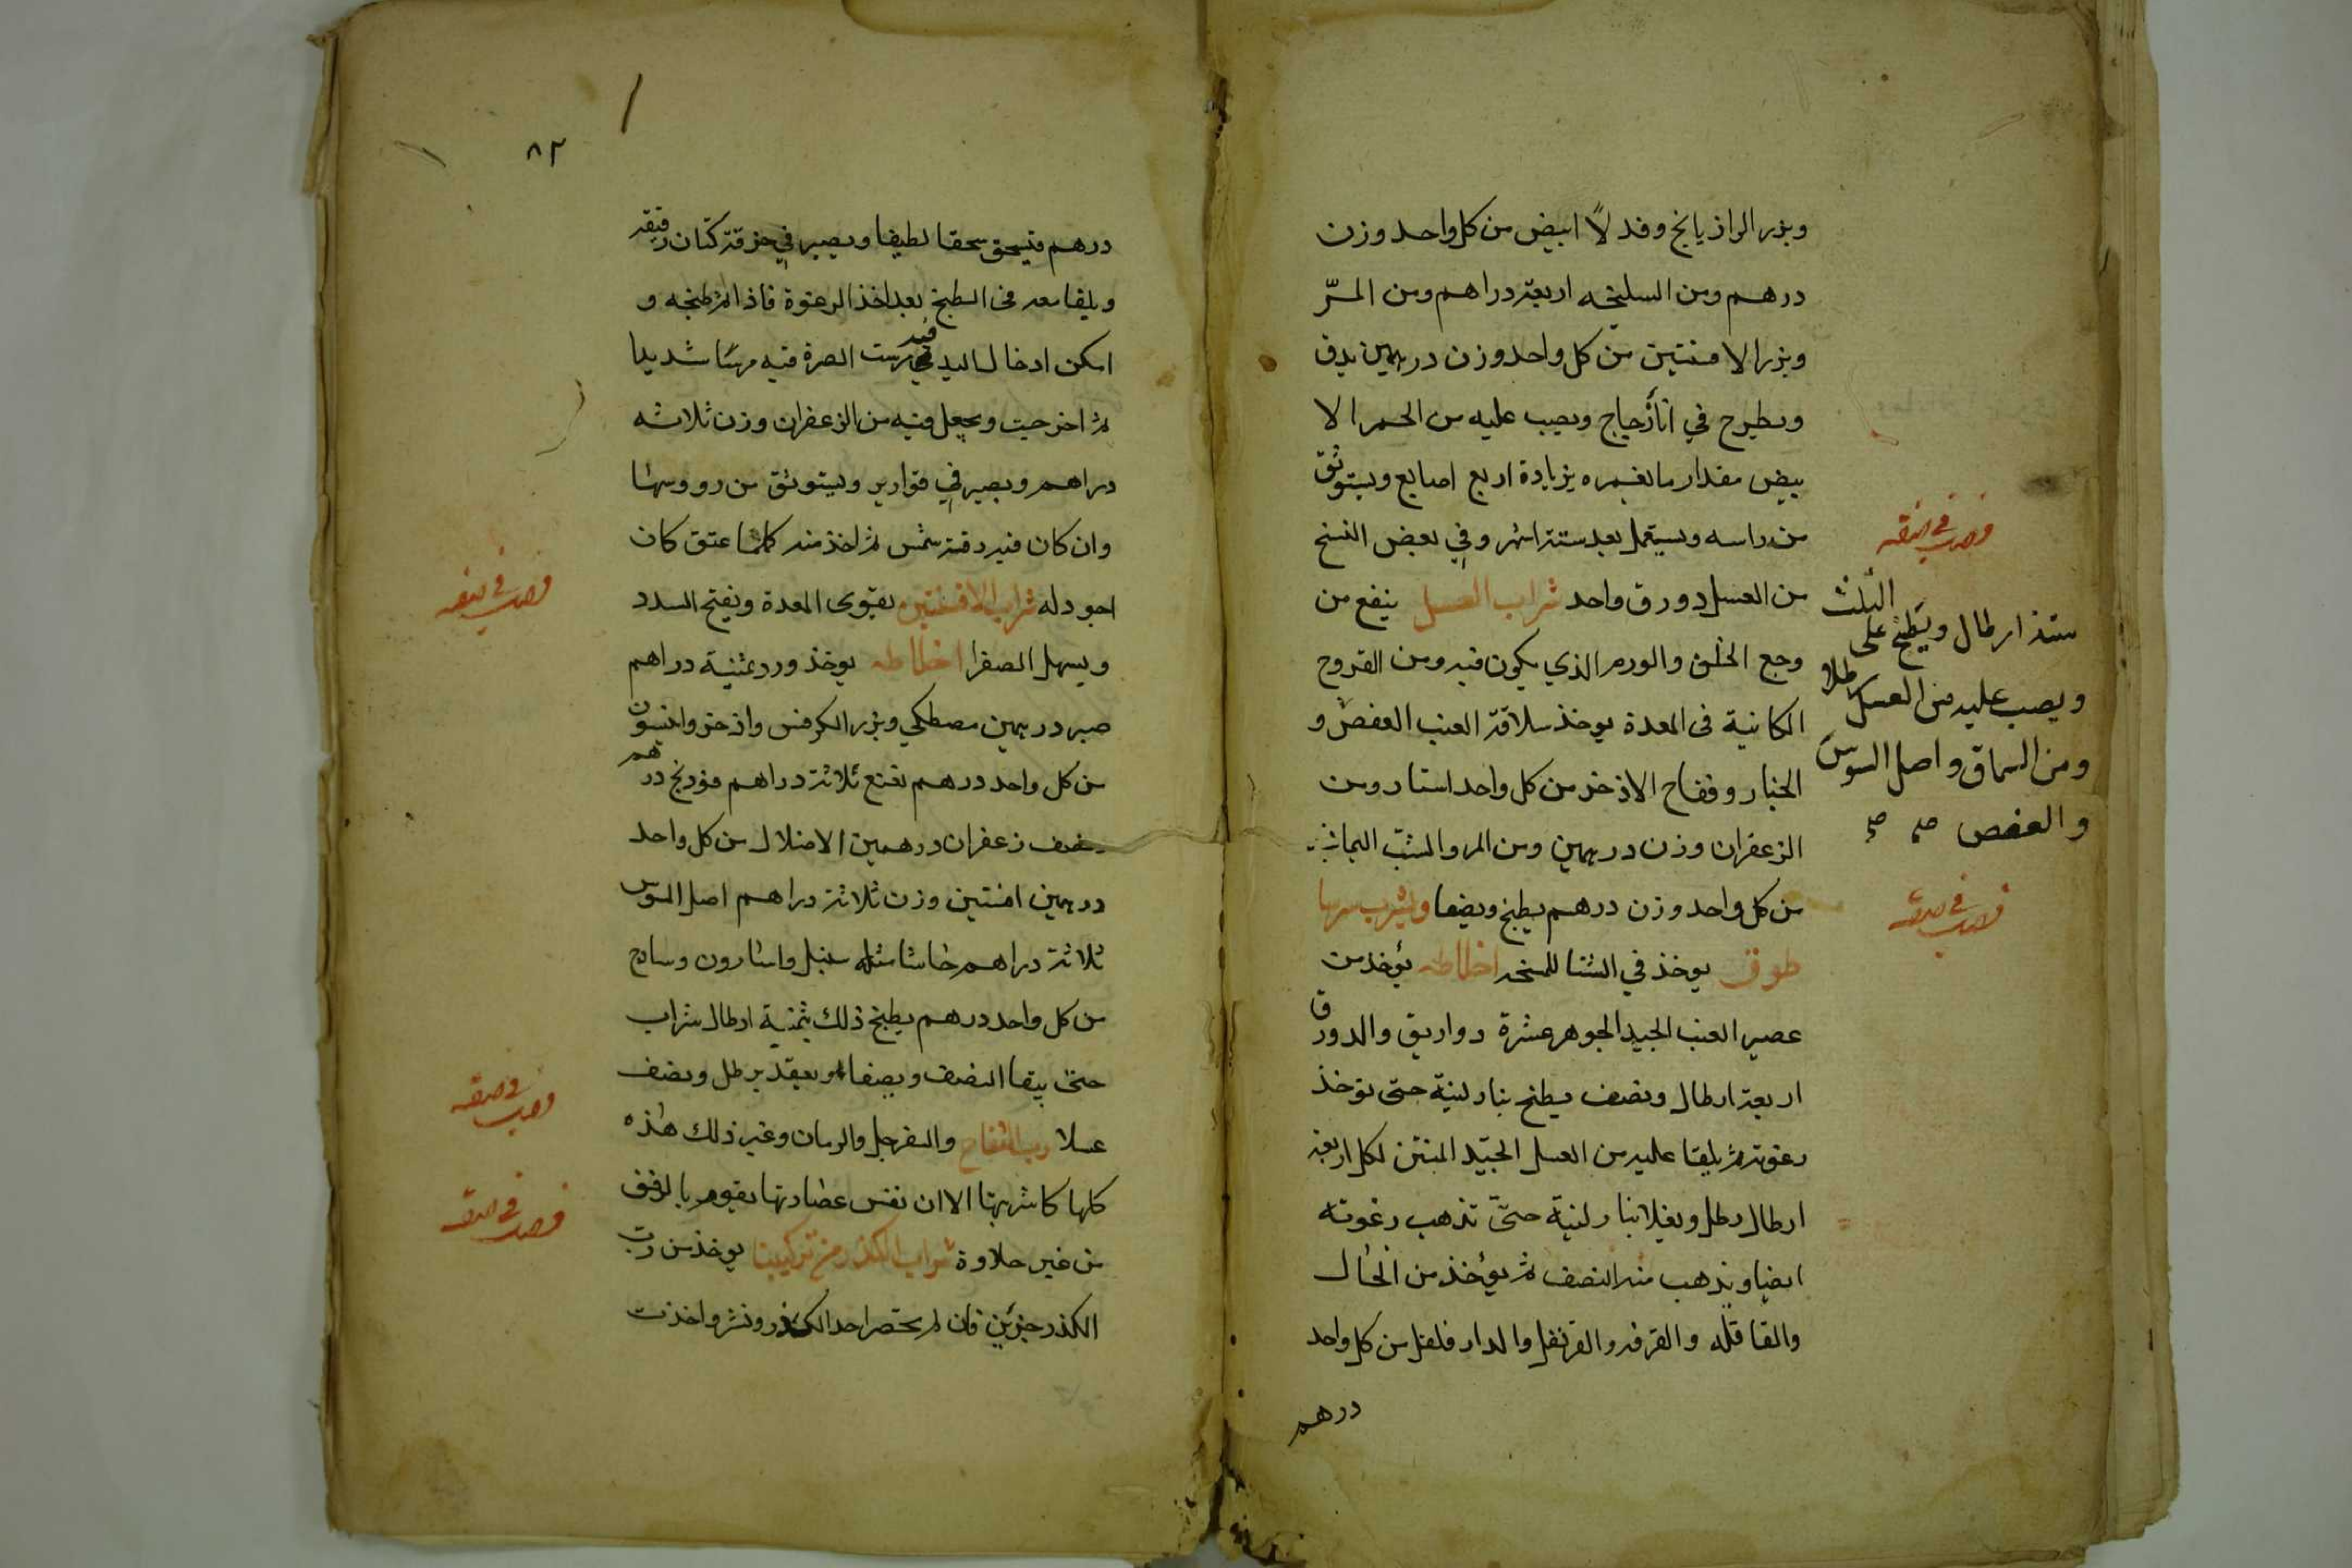 وبزر الرازيانج وفدلاً ابيض من كل واحد وزن
درهم ومن السليخه اربعة دراهم ومن المرّ
وبزر الافسنتين من كل واحد وزن درهمين يدق
ويطرح في انأ زجاج ويصب عليه من الخمر الا
بيض مقدار ما يغمره بزيادة اربع اصابع ويستوثق
من راسه ويستعمل بعد ستة اشهر وفي بعض النسخ
من العسل دورق واحد شراب العسل ينفع من
وجع الحلق والورم الذي يكون فيه ومن القروح
الكاينة في المعدة يوخذ سلاقة العنب العفص و
الجنار وفقاح الاذخر من كل واحد استار ومن
الزعفران وزن درهمين ومن المر والشب اليماني
من كل واحد وزن درهم يطبخ ويصفا ويشرب
طوق يوخذ في الشتا اخلاطه يؤخذ من
عصير العنب الجيد الجوهر عشرة دواريق والدورق
اربعة ارطال ونصف يطبخ بنار لينة حتى توخذ
رغوته ثم يلقا عليه من العسل الجيّد لكل اربعة
ارطال رطل ويغلا بنار لينة حتىّ تذهب رغوته
ايضا ويذهب منه النصف ثم يؤخذ من الخال
والقاقله والقرفه والقرنفل والدار فلفل من كل واحد
درهم
الثلث
ستة ارطال ويطبخ على
ويصب عليه من العسل رطلا
ومن السماق واصل السوس
والعفص صح صح
٨٢
درهم فيسحق سحقا لطيفا ويصير في خرقة كتان رقيقه
ويلقا معه في الطبخ بعد اخذ الرغوة فاذا تم طبخه و
امكن ادخال اليد فيه مرست الصرة فيه مرسًا شديدا
ثم اخرجت ويجعل فيه من الزعفران وزن ثلاثه
دراهم ويصير في قوارير ويستوثق من رووسها
وان كان فيه رقة شمس ثم اخذ منه كلما عتق كان
اجود له شراب الافسنتين يقوى المعدة ويفتح السدد
ويسهل الصفرا اخلاطه يوخذ ورد ثمنية دراهم
صبر درهمين مصطكي وبزر الكرفس واذخر وانيسون
من كل واحد درهم نعنع ثلاثة دراهم فودنج درهم
نصف زعفران درهمين من كل واحد
درهمين افسنتين وزن ثلاثة دراهم اصل السوس
ثلاثة دراهم حاشا مثله سنبل واسارون وسادج
من كل واحد درهم يطبخ ذلك بثمنية ارطال شراب
حتىّ يبقا النصف ويصفا ويعقد برطل ونصف
عسلا رب التفاح والسفرجل والرمان وغير ذلك هذه
كلها كاشربتها الا ان نفس عصارتها يقوم بالرفق
من غير حلاوة شراب الكدر من تركيبنا يوخذ من رب
الكدر جزئين فان لم يحضر احد الكدر ونشر واخذت